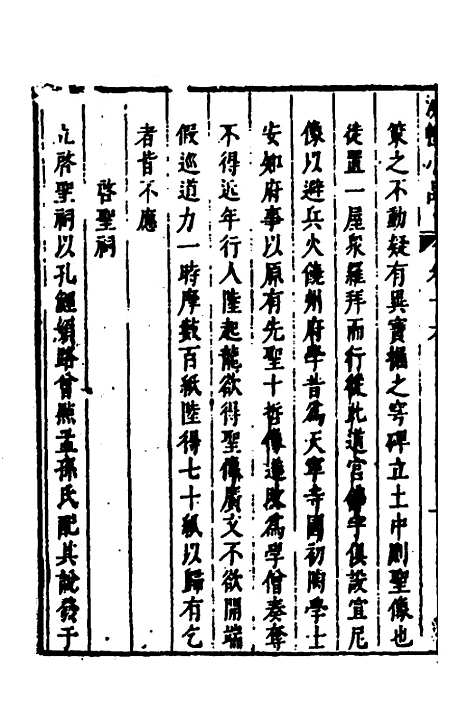 湧幢小品
策之不動疑有異寶掘之穿碑立土中則聖像也
徒置一屋衆羅拜而行從此道官佛宇俱設宣尼
像以避兵火饒州府學昔爲天寧寺國初陶學士
安知府事以原有先聖十哲像遂改爲學僧奏奪
不得近年行人陸起龍欲得聖像廣文不欲開端
假巡道力一時摩數百紙陸得七十紙以歸有乞
者皆不應
啓聖祠
立啓聖祠以孔鯉顔路曾㸃孟孫氏配其說發于